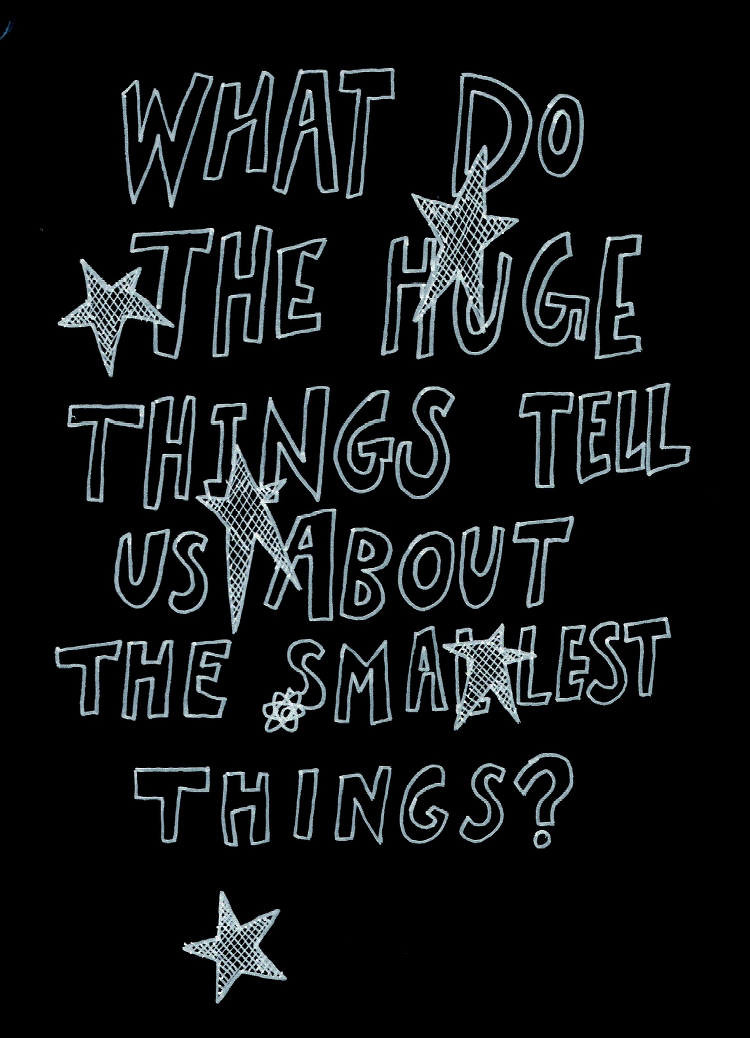 WHAT DO
THE HUGE
THINGS TELL
US ABOUT
THE SMALLEST
THINGS?